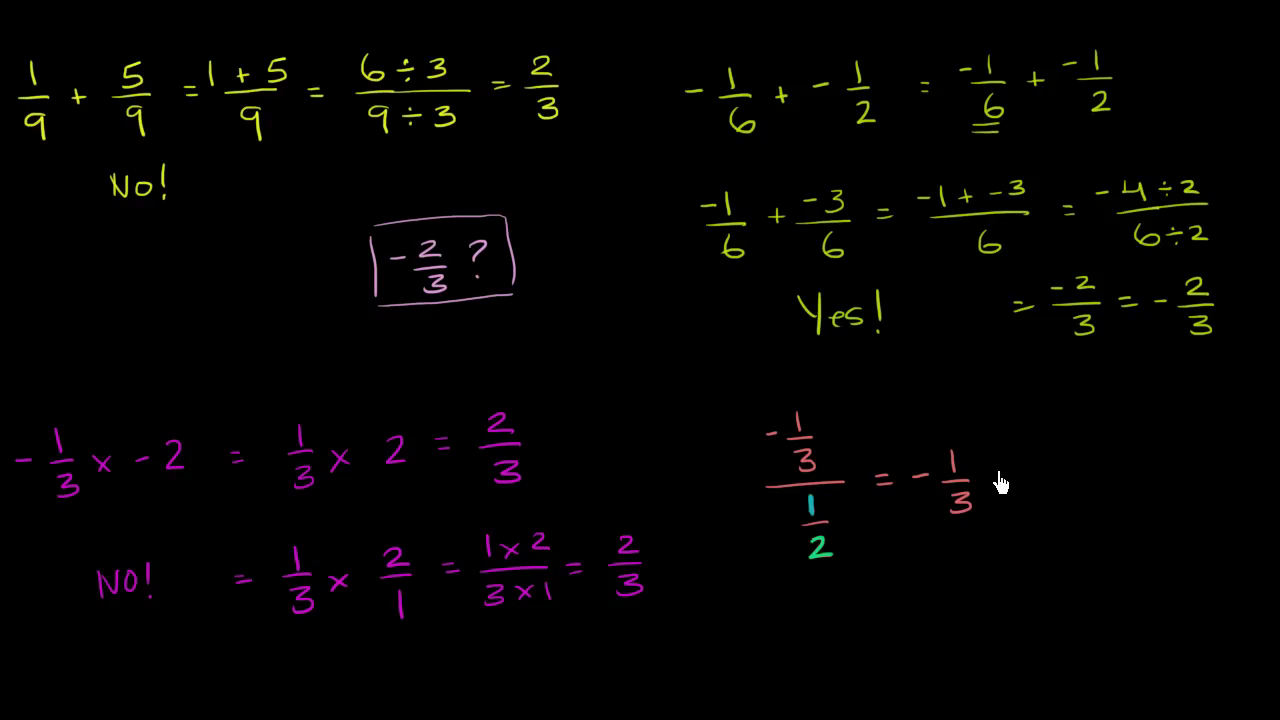 1/9 + 5/9 = 1 + 5/9 = 6 ÷ 3/9 ÷ 3 = 2/3
No!
-1/6 + -1/2 = -1/6 + -1/2
-1/6 + -3/6 = -1 + -3/6 = -4 ÷ 2/6 ÷ 2
Yes! = -2/3 = -2/3
-2/3 ?
-1/3 × -2 = 1/3 × 2 = 2/3
NO! = 1/3 × 2/1 = 1 × 2/3 × 1 = 2/3
-1/3/1/2 = -1/3